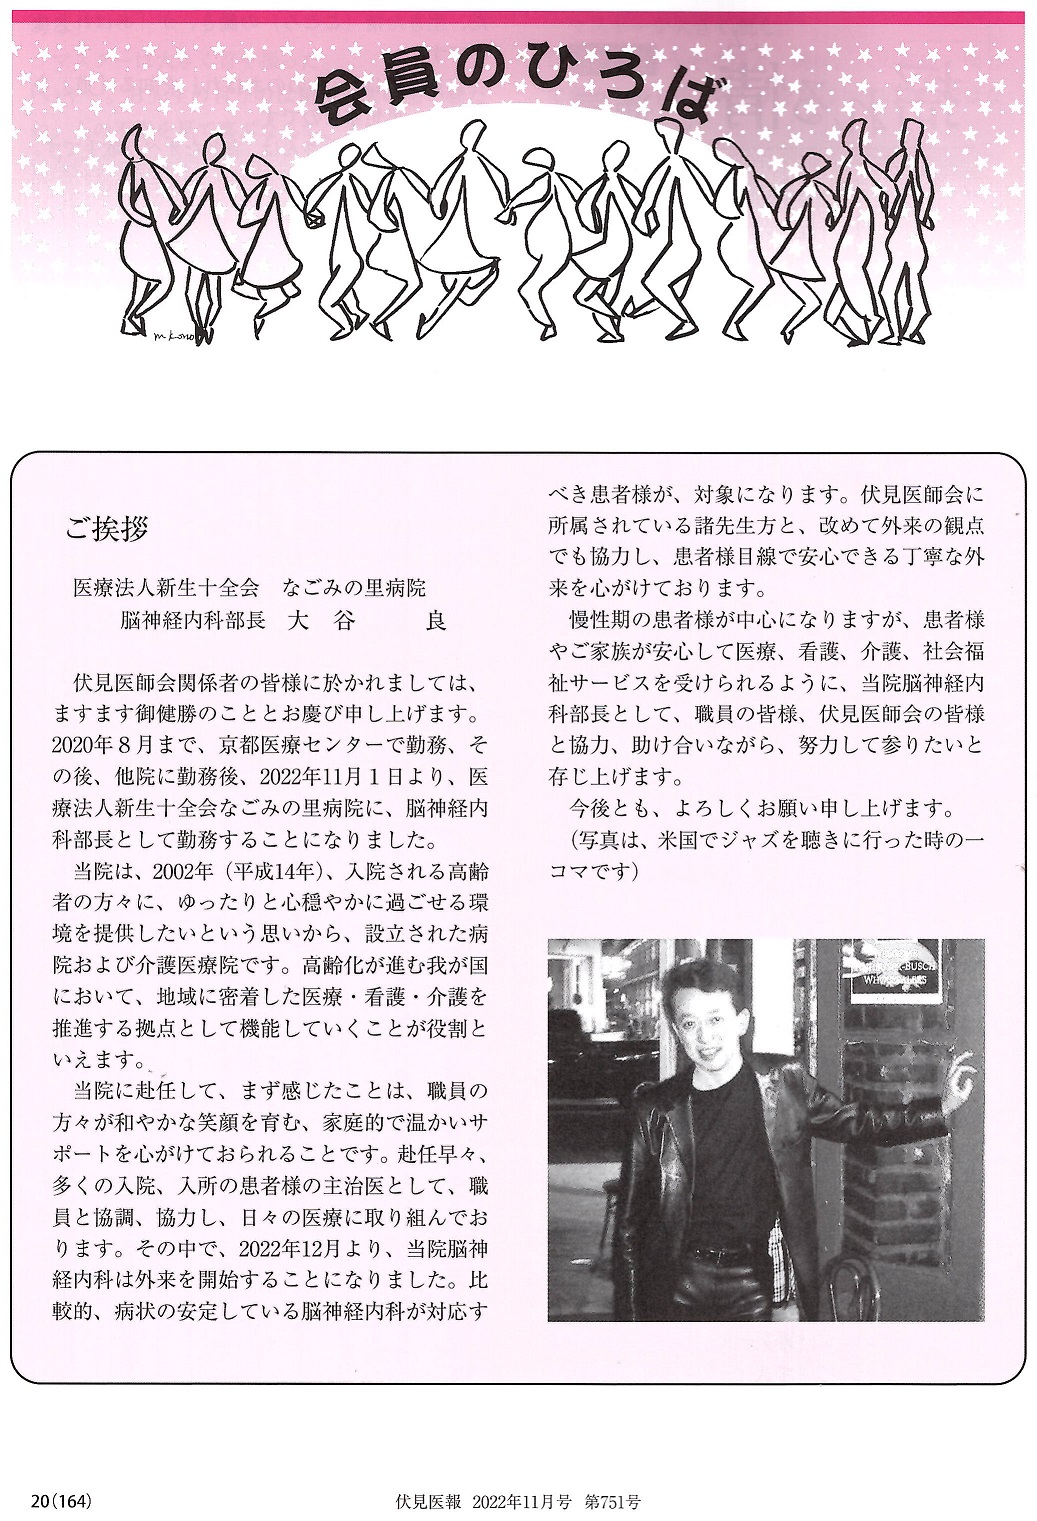 会員のひろば
m kono
ご挨拶
医療法人新生十全会　なごみの里病院
脳神経内科部長　大　谷　　　良
　伏見医師会関係者の皆様に於かれましては、
ますます御健勝のこととお慶び申し上げます。
2020年８月まで、京都医療センターで勤務、そ
の後、他院に勤務後、2022年11月１日より、医
療法人新生十全会なごみの里病院に、脳神経内
科部長として勤務することになりました。
　当院は、2002年（平成14年）、入院される高齢
者の方々に、ゆったりと心穏やかに過ごせる環
境を提供したいという思いから、設立された病
院および介護医療院です。高齢化が進む我が国
において、地域に密着した医療・看護・介護を
推進する拠点として機能していくことが役割と
いえます。
　当院に赴任して、まず感じたことは、職員の
方々が和やかな笑顔を育む、家庭的で温かいサ
ポートを心がけておられることです。赴任早々、
多くの入院、入所の患者様の主治医として、職
員と協調、協力し、日々の医療に取り組んでお
ります。その中で、2022年12月より、当院脳神
経内科は外来を開始することになりました。比
較的、病状の安定している脳神経内科が対応す
べき患者様が、対象になります。伏見医師会に
所属されている諸先生方と、改めて外来の観点
でも協力し、患者様目線で安心できる丁寧な外
来を心がけております。
　慢性期の患者様が中心になりますが、患者様
やご家族が安心して医療、看護、介護、社会福
祉サービスを受けられるように、当院脳神経内
科部長として、職員の皆様、伏見医師会の皆様
と協力、助け合いながら、努力して参りたいと
存じ上げます。
　今後とも、よろしくお願い申し上げます。
（写真は、米国でジャズを聴きに行った時の一
コマです）
20（164）
伏見医報　2022年11月号　第751号